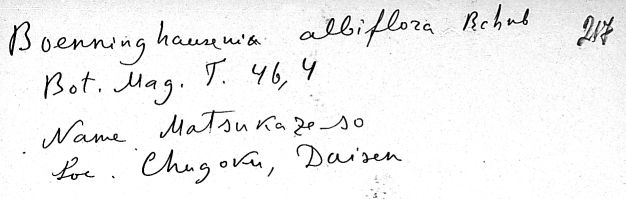 Boenninghausenia albiflora Rchnb 217
Bot. Mag. T. 46, 4
Name Matsukaze-so
Loc. Chugoku, Daisen